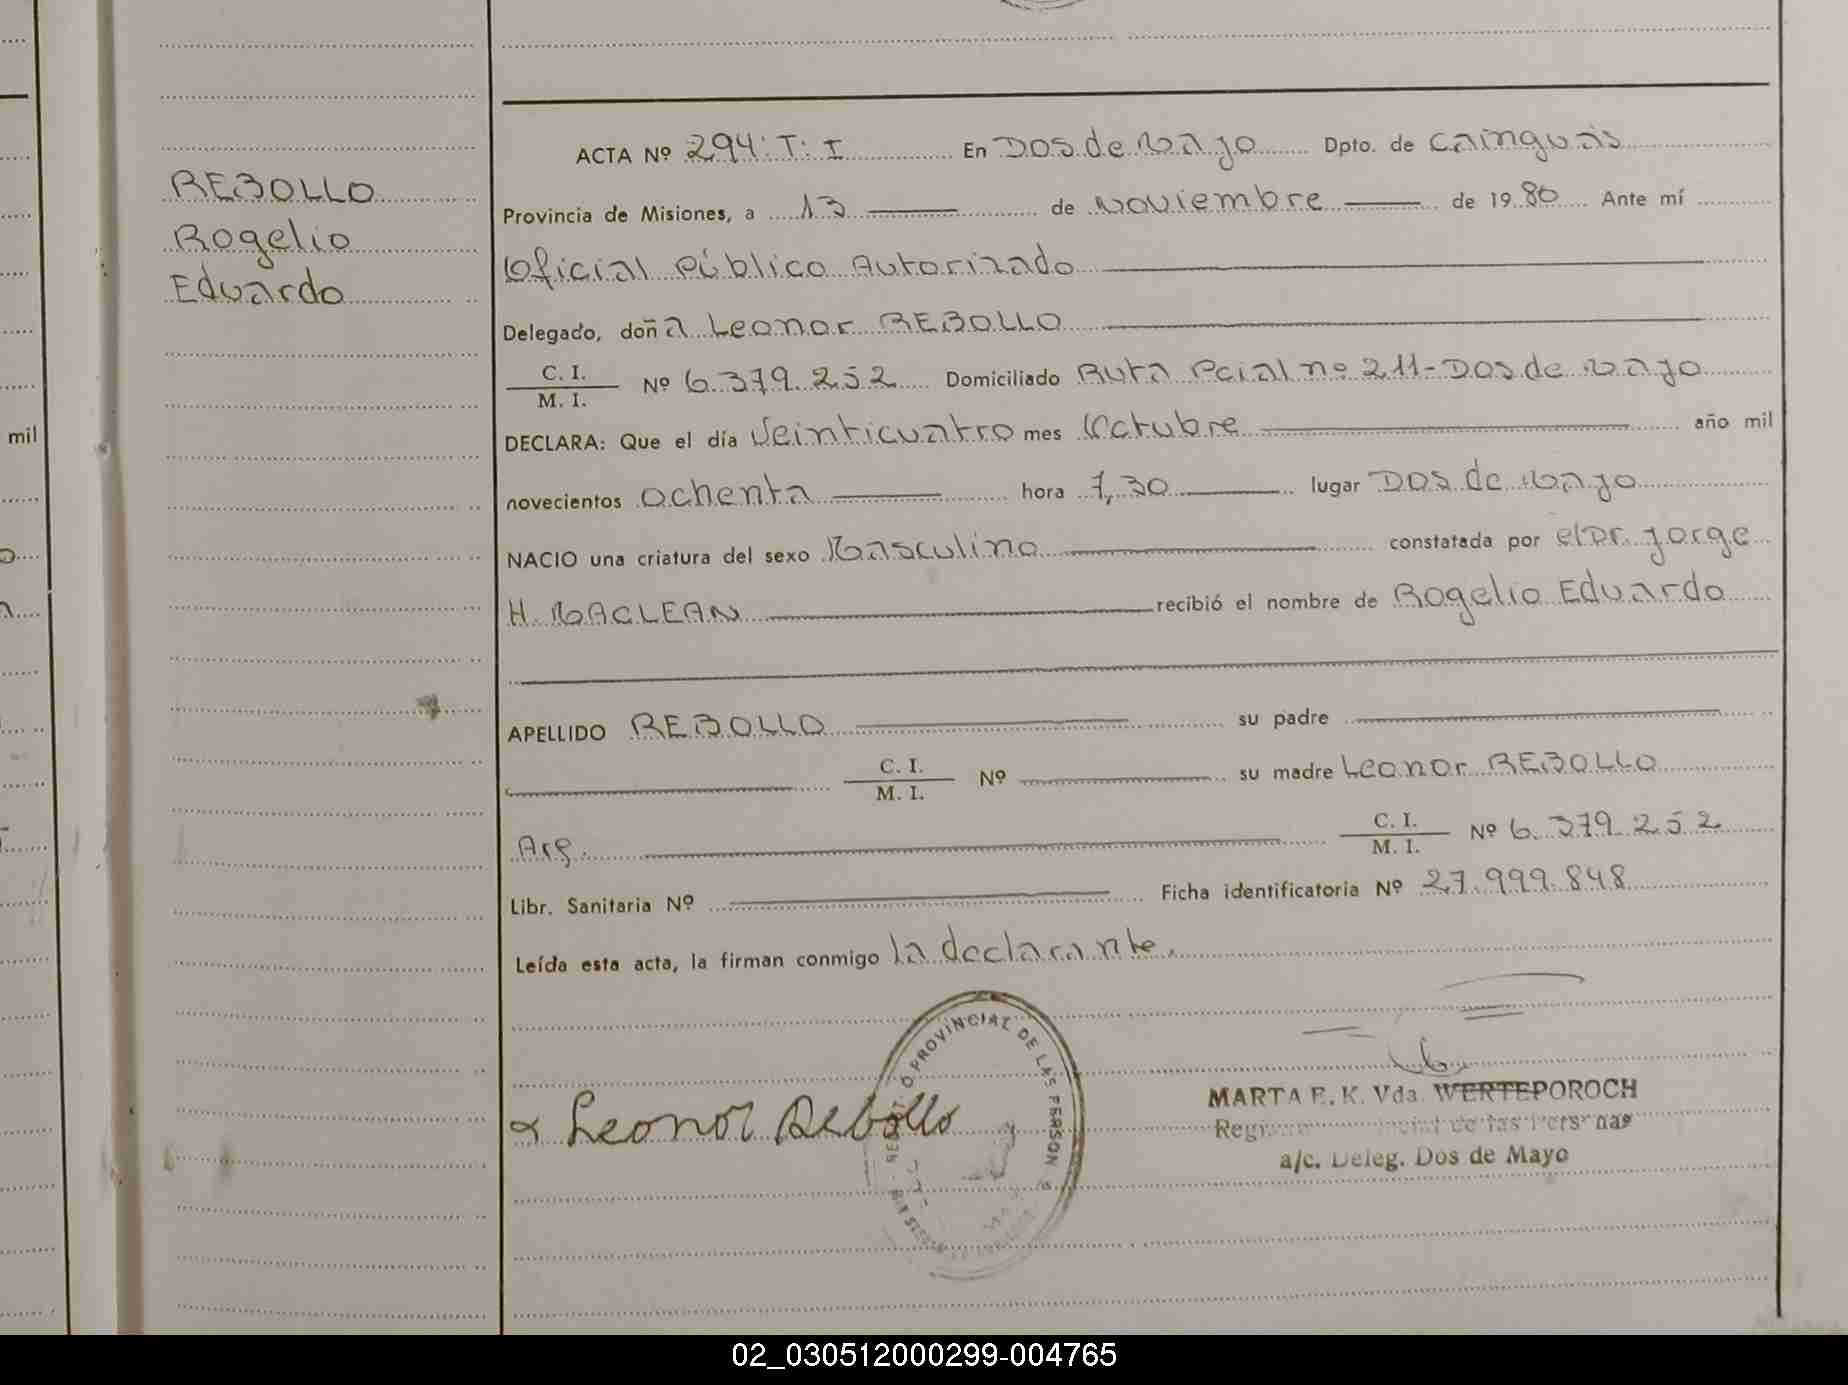 REBOLLO
Rogelio
Eduardo
mil
ACTA Nº 294: T: I En Dos de Mayo Dpto. de Cainguás
Provincia de Misiones, a 13 de Noviembre de 1980 Ante mí
Oficial Público Autorizado
Delegado, doña Leonor REBOLLO
C. I.
M. I. Nº 6.379.252 Domiciliado Ruta Pcial nº 211-Dos de Mayo
DECLARA: Que el día Veinticuatro mes Octubre año mil
novecientos ochenta hora 7,30 lugar Dos de Mayo
NACIO una criatura del sexo Masculino constatada por el Dr. Jorge
H. MACLEAN recibió el nombre de Rogelio Eduardo
APELLIDO REBOLLO su padre
C. I.
M. I. Nº su madre Leonor REBOLLO
Arg. C. I.
M. I. Nº 6.379.252
Libr. Sanitaria Nº Ficha identificatoria Nº 27.999.848
Leída esta acta, la firman conmigo la declarante.
O PROVINCIAL DE LAS PERSON
Leonor Rebollo
MARTA E. K. Vda. WERTEPOROCH
de las Personas
a/c. Deleg. Dos de Mayo
02_030512000299-004765